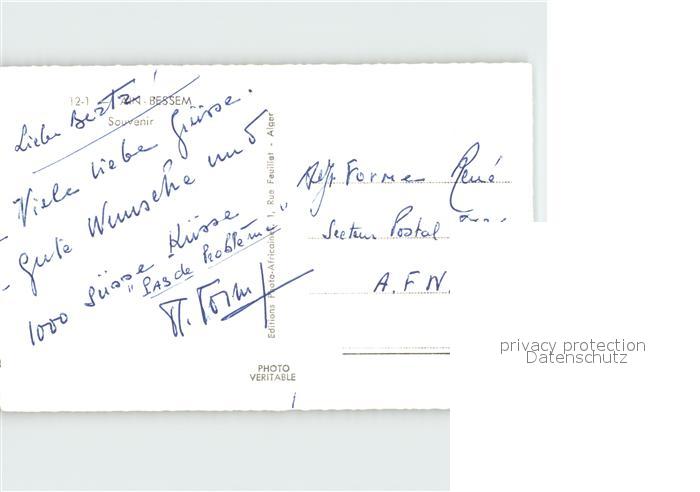 12-1 - AIN-BESSEM
Souvenir
Liebe Berta!
Viele liebe Grüsse.
Gute Wünsche und
1000 süsse Küsse
"Pas de Problème"
Editions Photo-Africaines, 1, Rue Feuillat - Alger
Forme René
Secteur Postal
A.F.N.
PHOTO
VERITABLE
privacy protection
Datenschutz